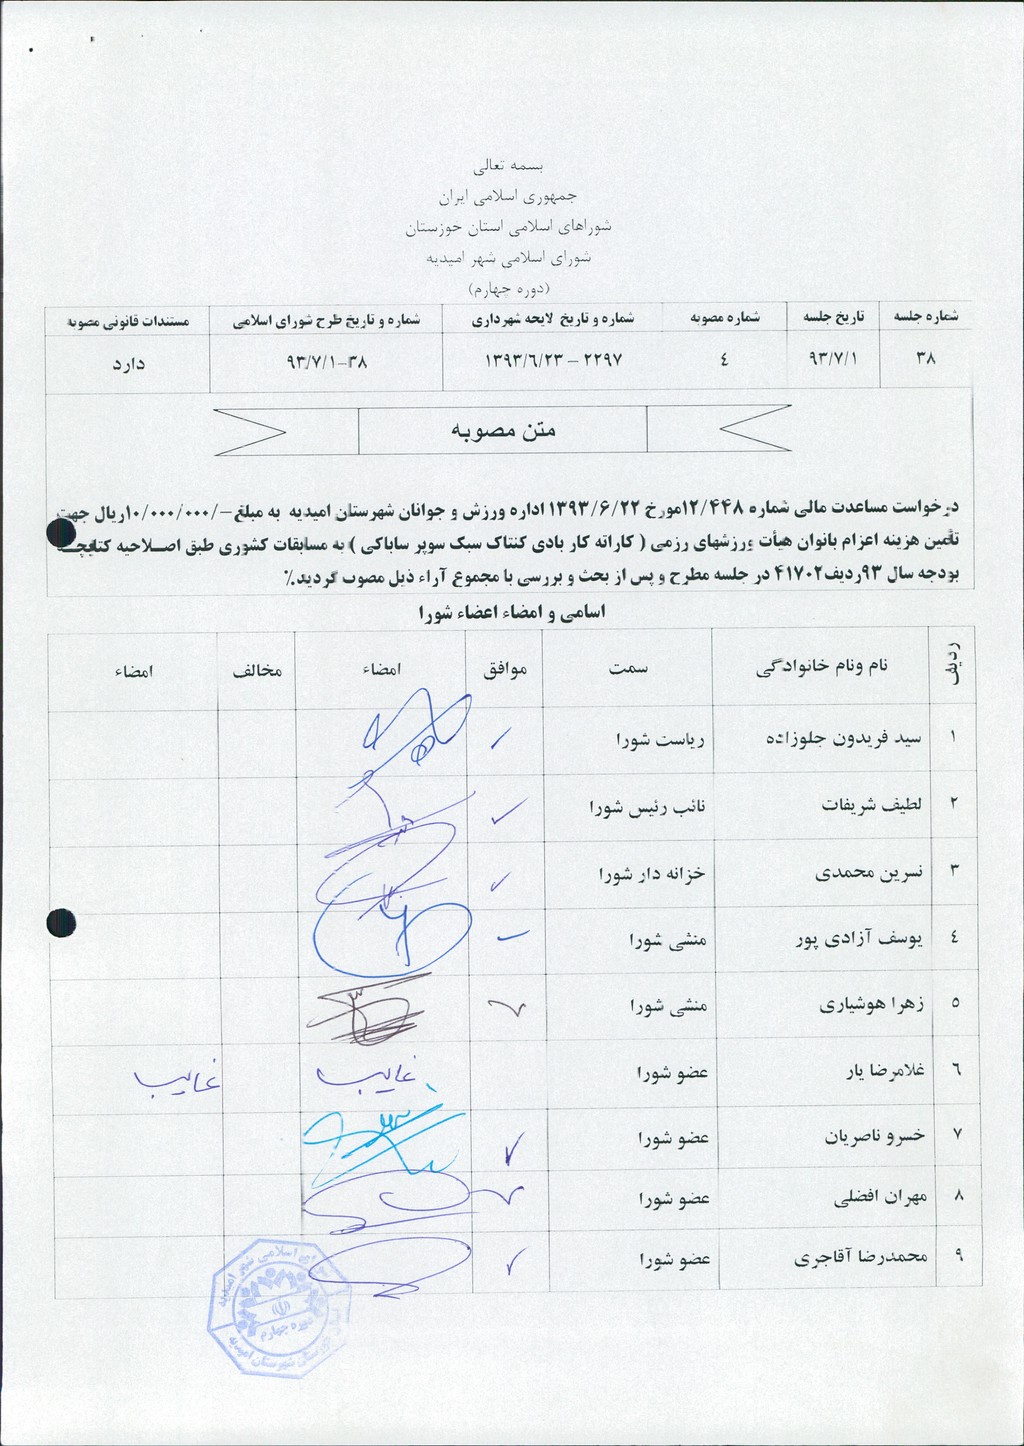 بسمه تعالی
جمهوری اسلامی ایران
شوراهای اسلامی استان خوزستان
شورای اسلامی شهر امیدیه
(دوره چهارم)
شماره جلسه تاریخ جلسه شماره مصوبه شماره و تاریخ لایحه شهرداری شماره و تاریخ طرح شورای اسلامی مستندات قانونی مصوبه
۳۸ ۹۳/۷/۱ ٤ ۲۲۹۷ – ۱۳۹۳/٦/۲۳ ۳۸-۹۳/۷/۱ دارد
متن مصوبه
درخواست مساعدت مالی شماره ۱۲/۴۴۸مورخ ۱۳۹۳/۶/۲۲ اداره ورزش و جوانان شهرستان امیدیه به مبلغ-/۱۰/۰۰۰/۰۰۰ریال جهت
تأمین هزینه اعزام بانوان هیأت ورزشهای رزمی ( کاراته کار بادی کنتاک سبک سوپر ساباکی ) به مسابقات کشوری طبق اصـلاحیه کتابچـه
بودجه سال ۹۳ردیف۴۱۷۰۲ در جلسه مطرح و پس از بحث و بررسی با مجموع آراء ذیل مصوب گردید.٪
اسامی و امضاء اعضاء شورا
ردیف نام ونام خانوادگی سمت موافق امضاء مخالف امضاء
۱ سید فریدون جلوزاده ریاست شورا
۲ لطیف شریفات نائب رئیس شورا
۳ نسرین محمدی خزانه دار شورا
٤ یوسف آزادی پور منشی شورا
٥ زهرا هوشیاری منشی شورا
٦ غلامرضا یار عضو شورا غایب غایب
۷ خسرو ناصریان عضو شورا
۸ مهران افضلی عضو شورا
۹ محمدرضا آقاجری عضو شورا
دوره چهارم